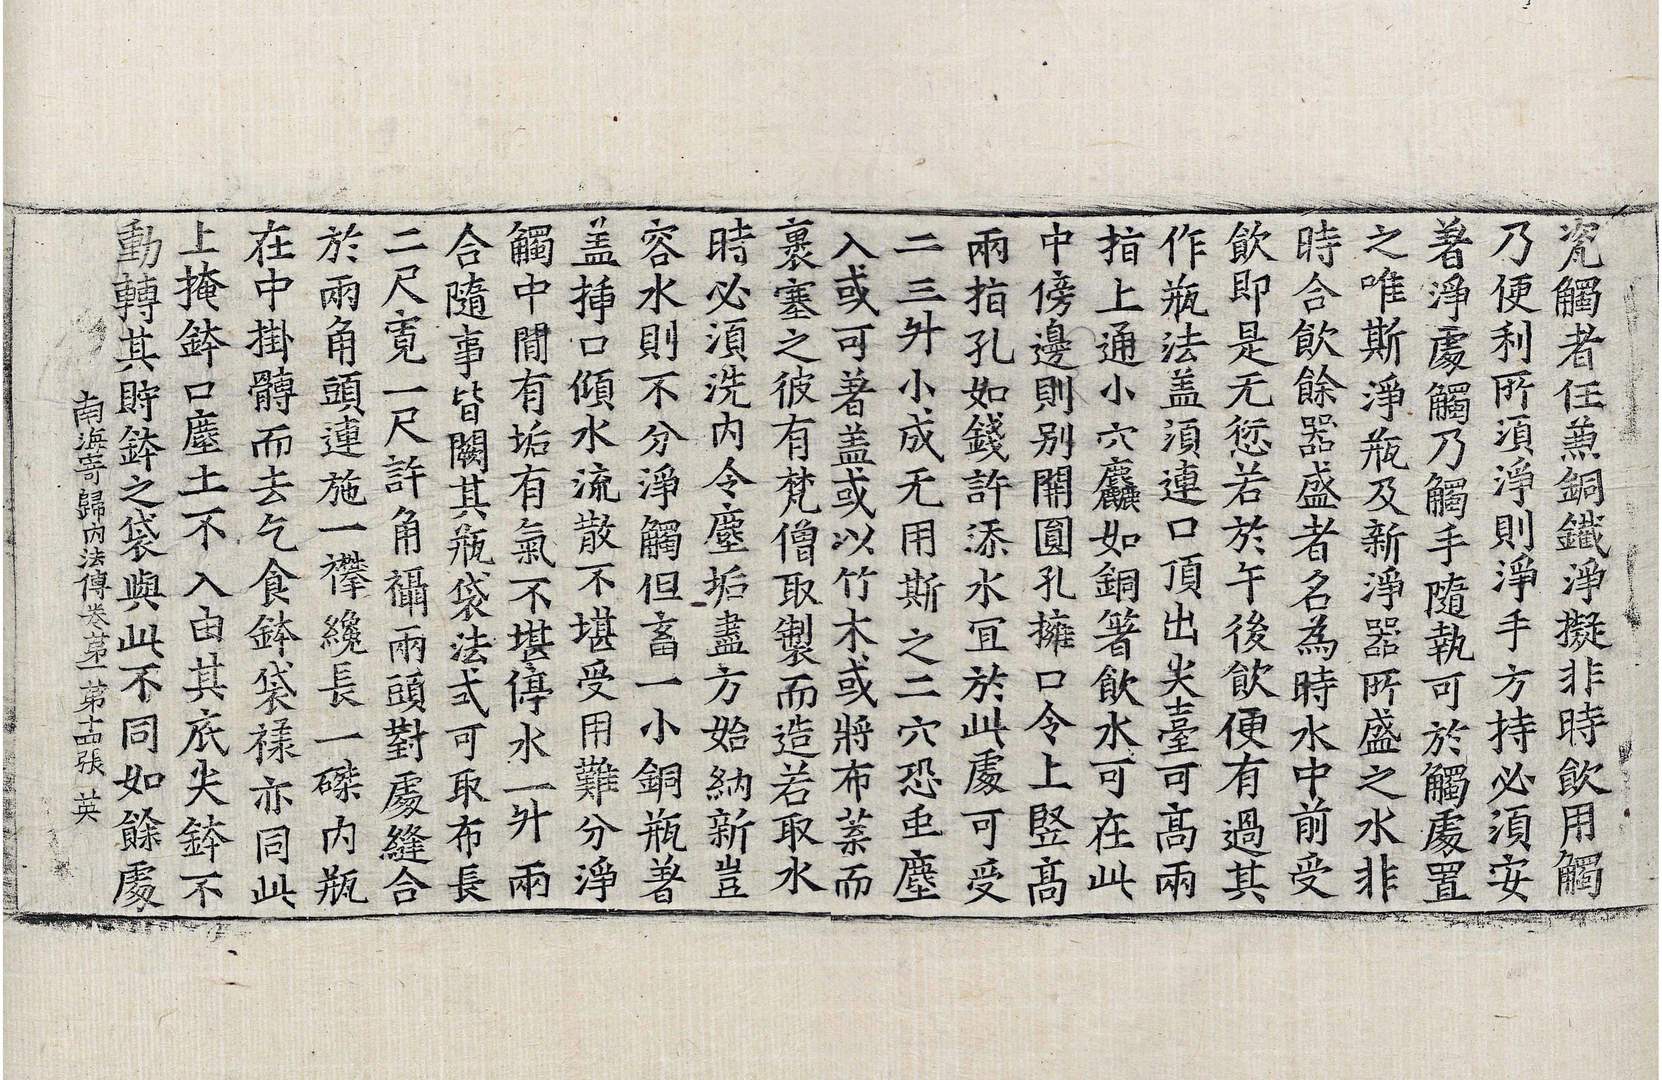 瓷觸者任兼銅鐵淨擬非時飲用觸
乃便利所須淨則淨手方持必須安
著淨處觸乃觸手隨執可於觸處置
之唯斯淨瓶及新淨器所盛之水非
時合飲餘器盛者名為時水中前受
飲即是无愆若於午後飲便有過其
作瓶法盖須連口頂出尖臺可髙兩
指上通小穴麤如銅箸飲水可在此
中傍邊則别開圓孔擁口令上竪髙
兩指孔如錢許添水冝於此處可受
二三升小成无用斯之二穴恐虫塵
入或可著盖或以竹木或將布葉而
裹塞之彼有梵僧取製而造若取水
時必須洗内令塵垢盡方始納新豈
容水則不分淨觸但畜一小銅瓶著
盖揷口傾水流散不堪受用難分淨
觸中閒有垢有氣不堪停水一升兩
合隨事皆闕其瓶袋法式可取布長
二尺寛一尺許角襵兩頭對處縫合
於兩角頭連施一襻纔長一磔内瓶
在中掛髆而去乞食鉢袋樣亦同此
上掩鉢口塵土不入由其底尖鉢不
動轉其貯鉢之袋與此不同如餘處
南海寄歸内法傳卷第一 第十四張 英